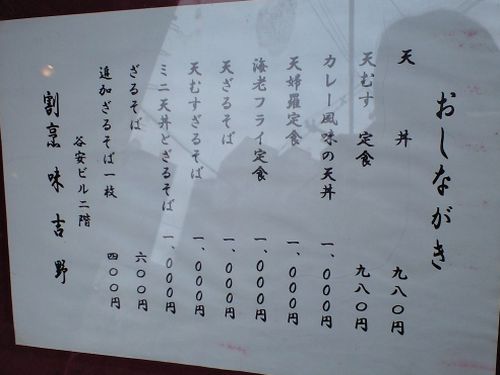 おしながき
天丼 九八〇円
天むす定食 九八〇円
カレー風味の天丼 一、〇〇〇円
天婦羅定食 一、〇〇〇円
海老フライ定食 一、〇〇〇円
天ざるそば 一、〇〇〇円
天むすざるそば 一、〇〇〇円
ミニ天丼とざるそば 一、〇〇〇円
ざるそば 六〇〇円
追加ざるそば一枚 四〇〇円
谷安ビル二階
割烹 味吉野